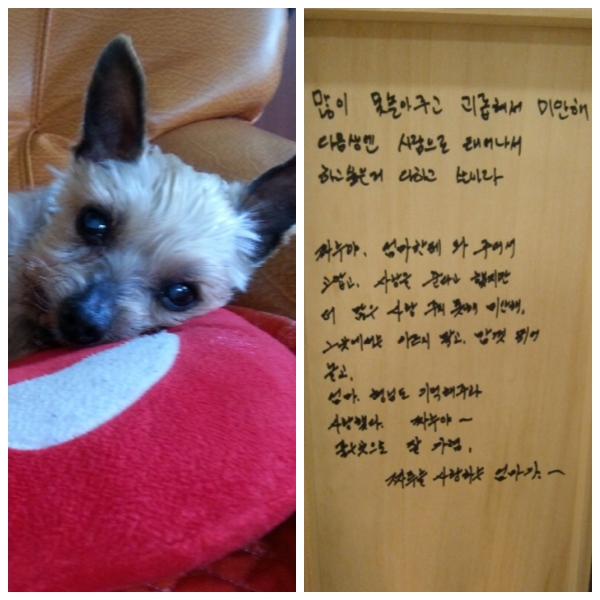 많이 못놀아주고 괴롭혀서 미안해
다음생엔 사람으로 태어나서
하고싶은거 다하고 살아라
짜누야. 엄마한테 와 주어서
고맙고. 사랑을 준다고 했지만
더 많은 사랑 주지 못해 미안해.
그곳에서는 아프지 말고. 맘껏 뛰어
놀고.
엄마. 형님도 기억해주라
사랑했다. 짜누야~
좋은곳으로 잘 가렴.
짜누를 사랑하는 엄마가.~